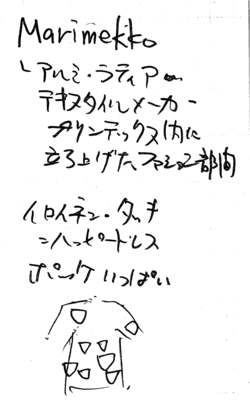 Marimekko
└アルミ・ラティアの
テキスタイルメーカー
プリンテックス内に
立ち上げたファション部門
イロイネン・タッキ
=ハッピードレス
ポッケいっぱい